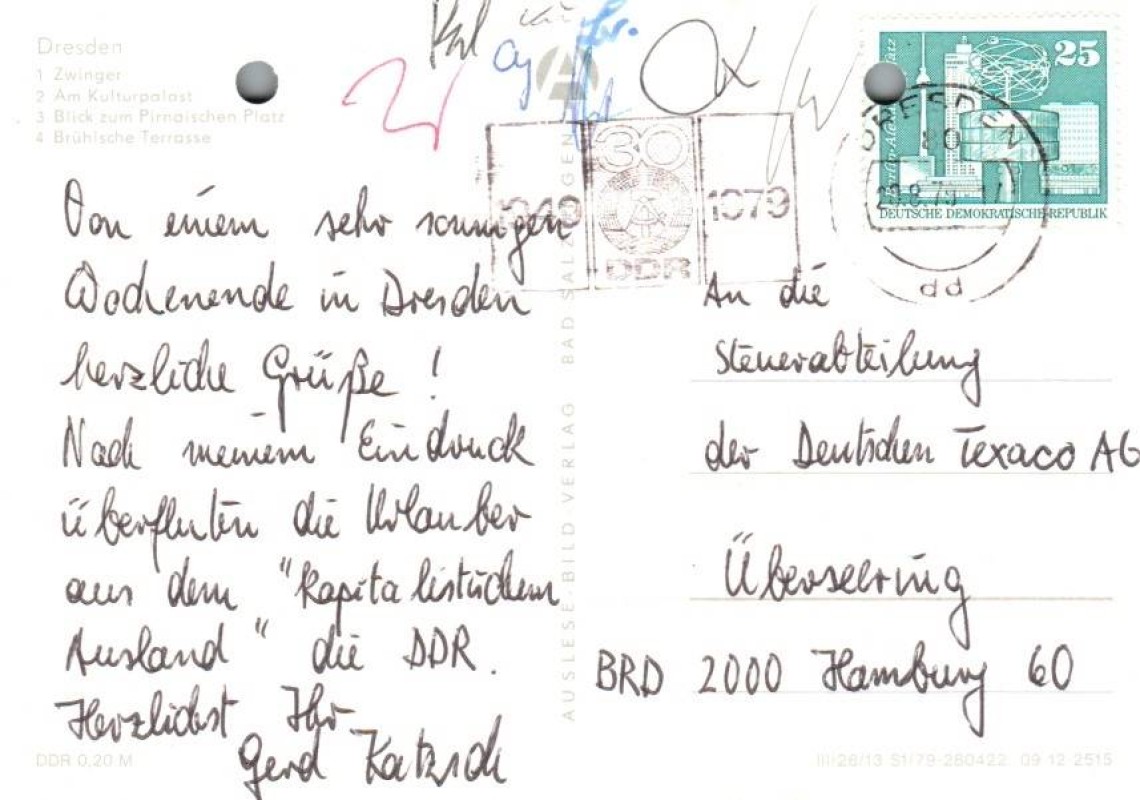 Dresden
1 Zwinger
2 Am Kulturpalast
3 Blick zum Pirnaischen Platz
4 Brühische Terrasse
Von einem sehr sonnigen
Wochenende in Dresden
herzliche Grüße!
Nach meinem Eindruck
überfluten die Urlauber
aus dem "kapitalistischen
Ausland" die DDR.
Herzlichst Ihr
Gerd Katzsch
DDR 0,20 M
AUSLESE-BILD-VERLAG BAD SALZUNGEN
1949 30 1979
DDR
25
Berlin-Alexanderplatz
DEUTSCHE DEMOKRATISCHE REPUBLIK
DRESDEN
80
dd
An die
Steuerabteilung
der Deutschen Texaco AG
Überseering
BRD 2000 Hamburg 60
III/26/13 S1/79-280422 09 12 2515